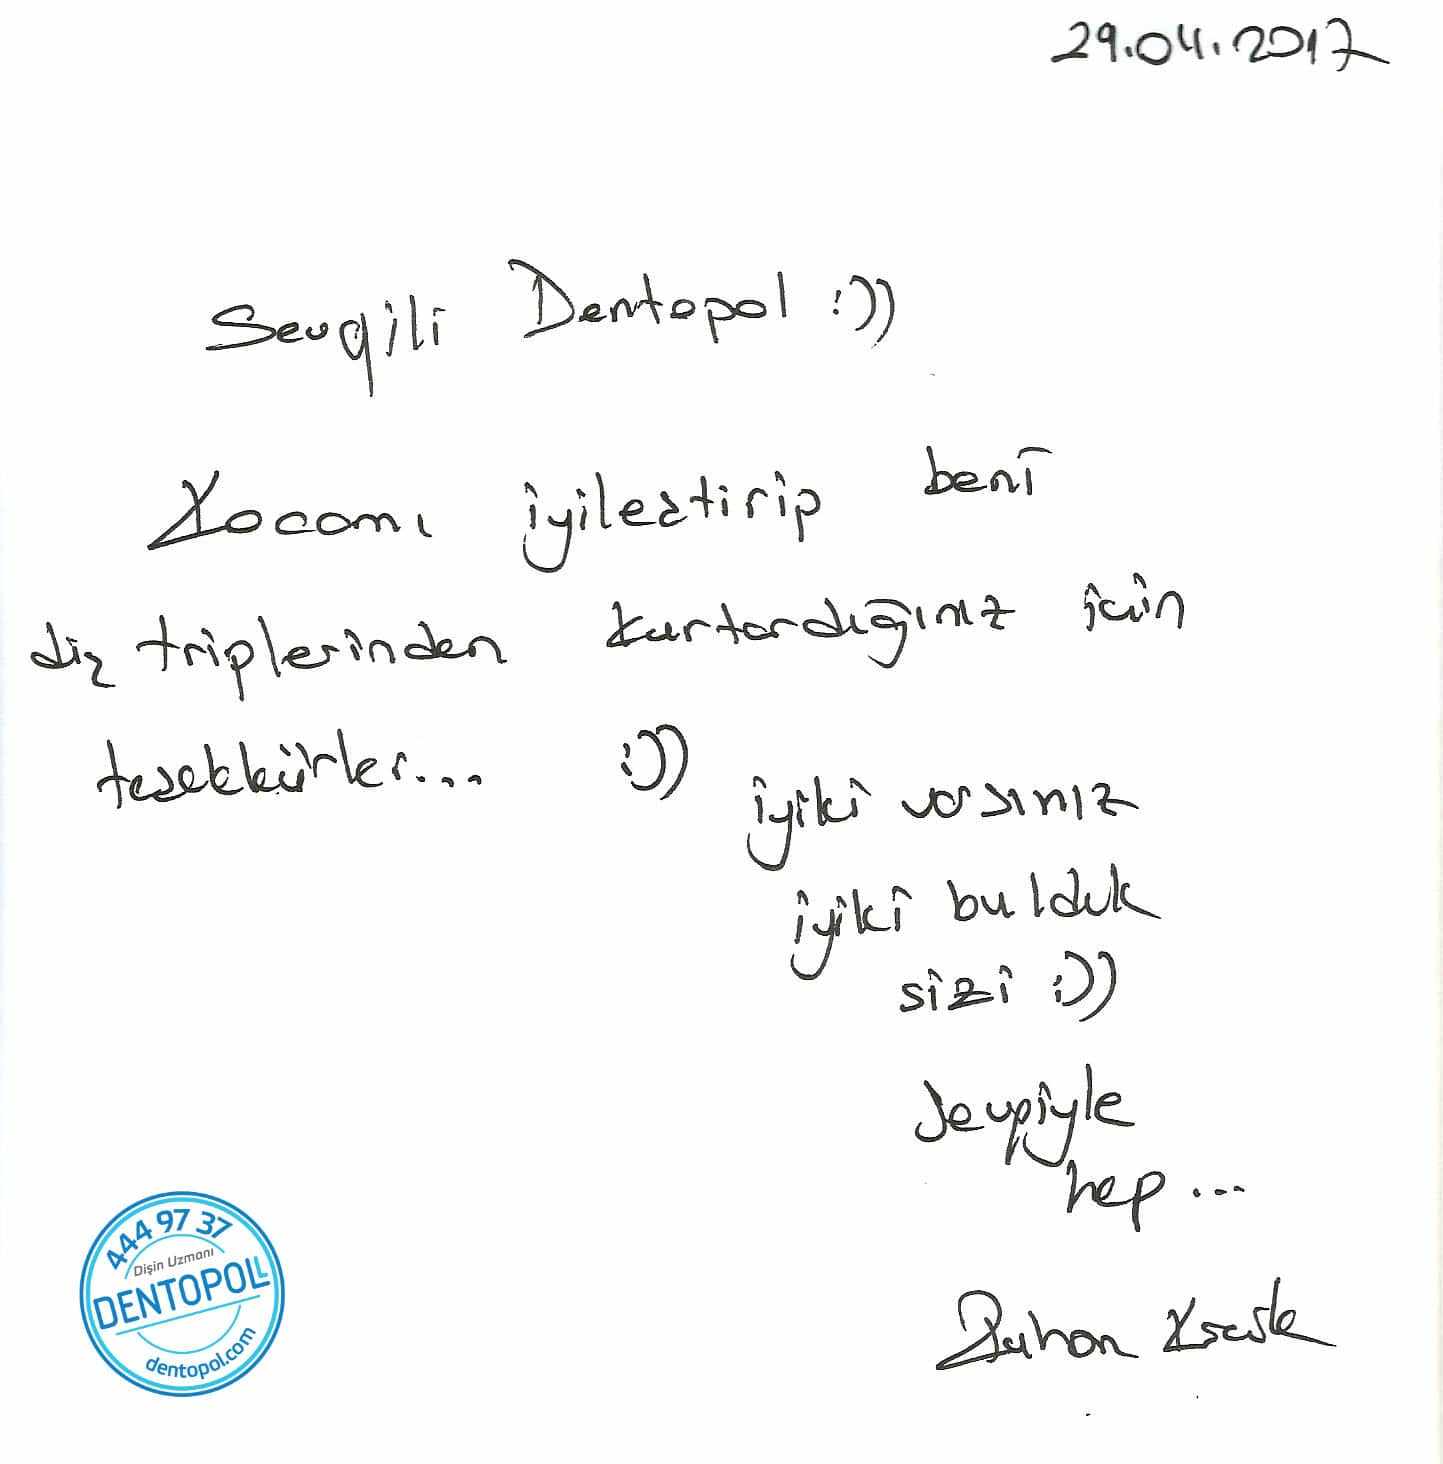 29.04.2017
Sevgili Dentopol :))
Kocamı iyileştirip beni
diş triplerinden kurtardığınız için
teşekkürler... :))
iyiki varsınız
iyiki bulduk
sizi :))
Sevgiyle
hep...
444 97 37
Dişin Uzmanı
DENTOPOL
dentopol.com